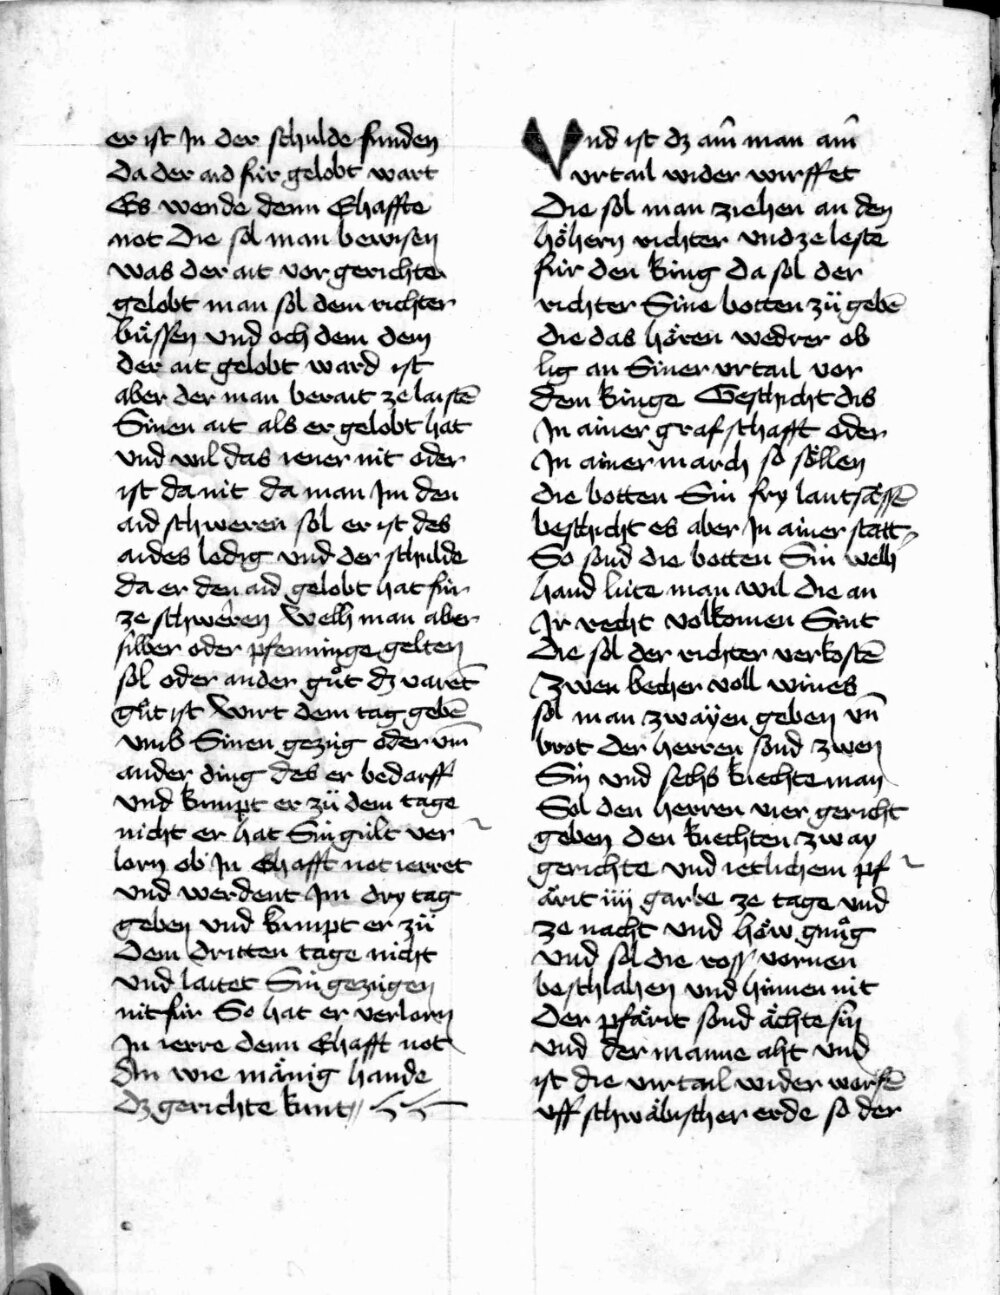 er ist In der schulde funden
Da der aid für gelobt wart
Es wende denn Ehaffte
not Die sol man bewisen
was der ait vor gerichte
gelobt man sol dem richter
büssen vnd och dem dem
der ait gelobt ward ist
aber der man berait ze laistē
Sinen ait als er gelobt hat
vnd wil das iener nit oder
ist da nit da man Im den
aid schweren sol er ist des
aides ledig vnd der schulde
da er den aid gelobt hat für
ze schweren Welh man aber
silber oder pfenninge gelten
sol oder ander gůt dz varēt
gůt ist Wirt dem tag gebē
vmb Sinen gezüg oder vm̄
ander ding des er bedarff
vnd kumpt er zü dem tage
nicht er hat Sin gült ver
lorn ob In Ehafft not ierret
vnd werdent Im dry tag
geben vnd kumpt er zü
dem dritten tage nicht
vnd laitet Sin gezügen
nit für So hat er verlorn
In ierre denn Ehafft not
An wie mänig hande
dz gerichte kunt
Vnd ist dz aim̄ man aim̄
vrtail wider wirffet
Die sol man ziehen an den
höhern richter vnd ze leste
für den king da sol der
richter Sine botten zü gebē
die das hören wedrer ob
lig an Siner vrtail vor
dem kinge Geschicht dis
In ainer grafschafft oder
In ainer march so söllen
die botten Sin fry lantsässē
beschicht es aber In ainer statt
So sond die botten Sin welh
hand lüte man wil die an
Ir recht volkomen Sint
Die sol der richter verkostē
Zwen becher voll wines
sol man zwayen geben vn̄
brot Der herren sond zwen
Sin vnd sechs knechte man
Sol den herren vier gericht
geben den knechten zway
gerichte vnd ietlichem pf
ärit iiij garbe ze tage vnd
ze nacht vnd höw gnůg
vnd sol die ross vornen
beschlahen vnd hinnen nit
Der pfärit sond ächte sin
vnd der manne aht vnd
ist die vrtail wider worfē
vff schwäbischer erde so der